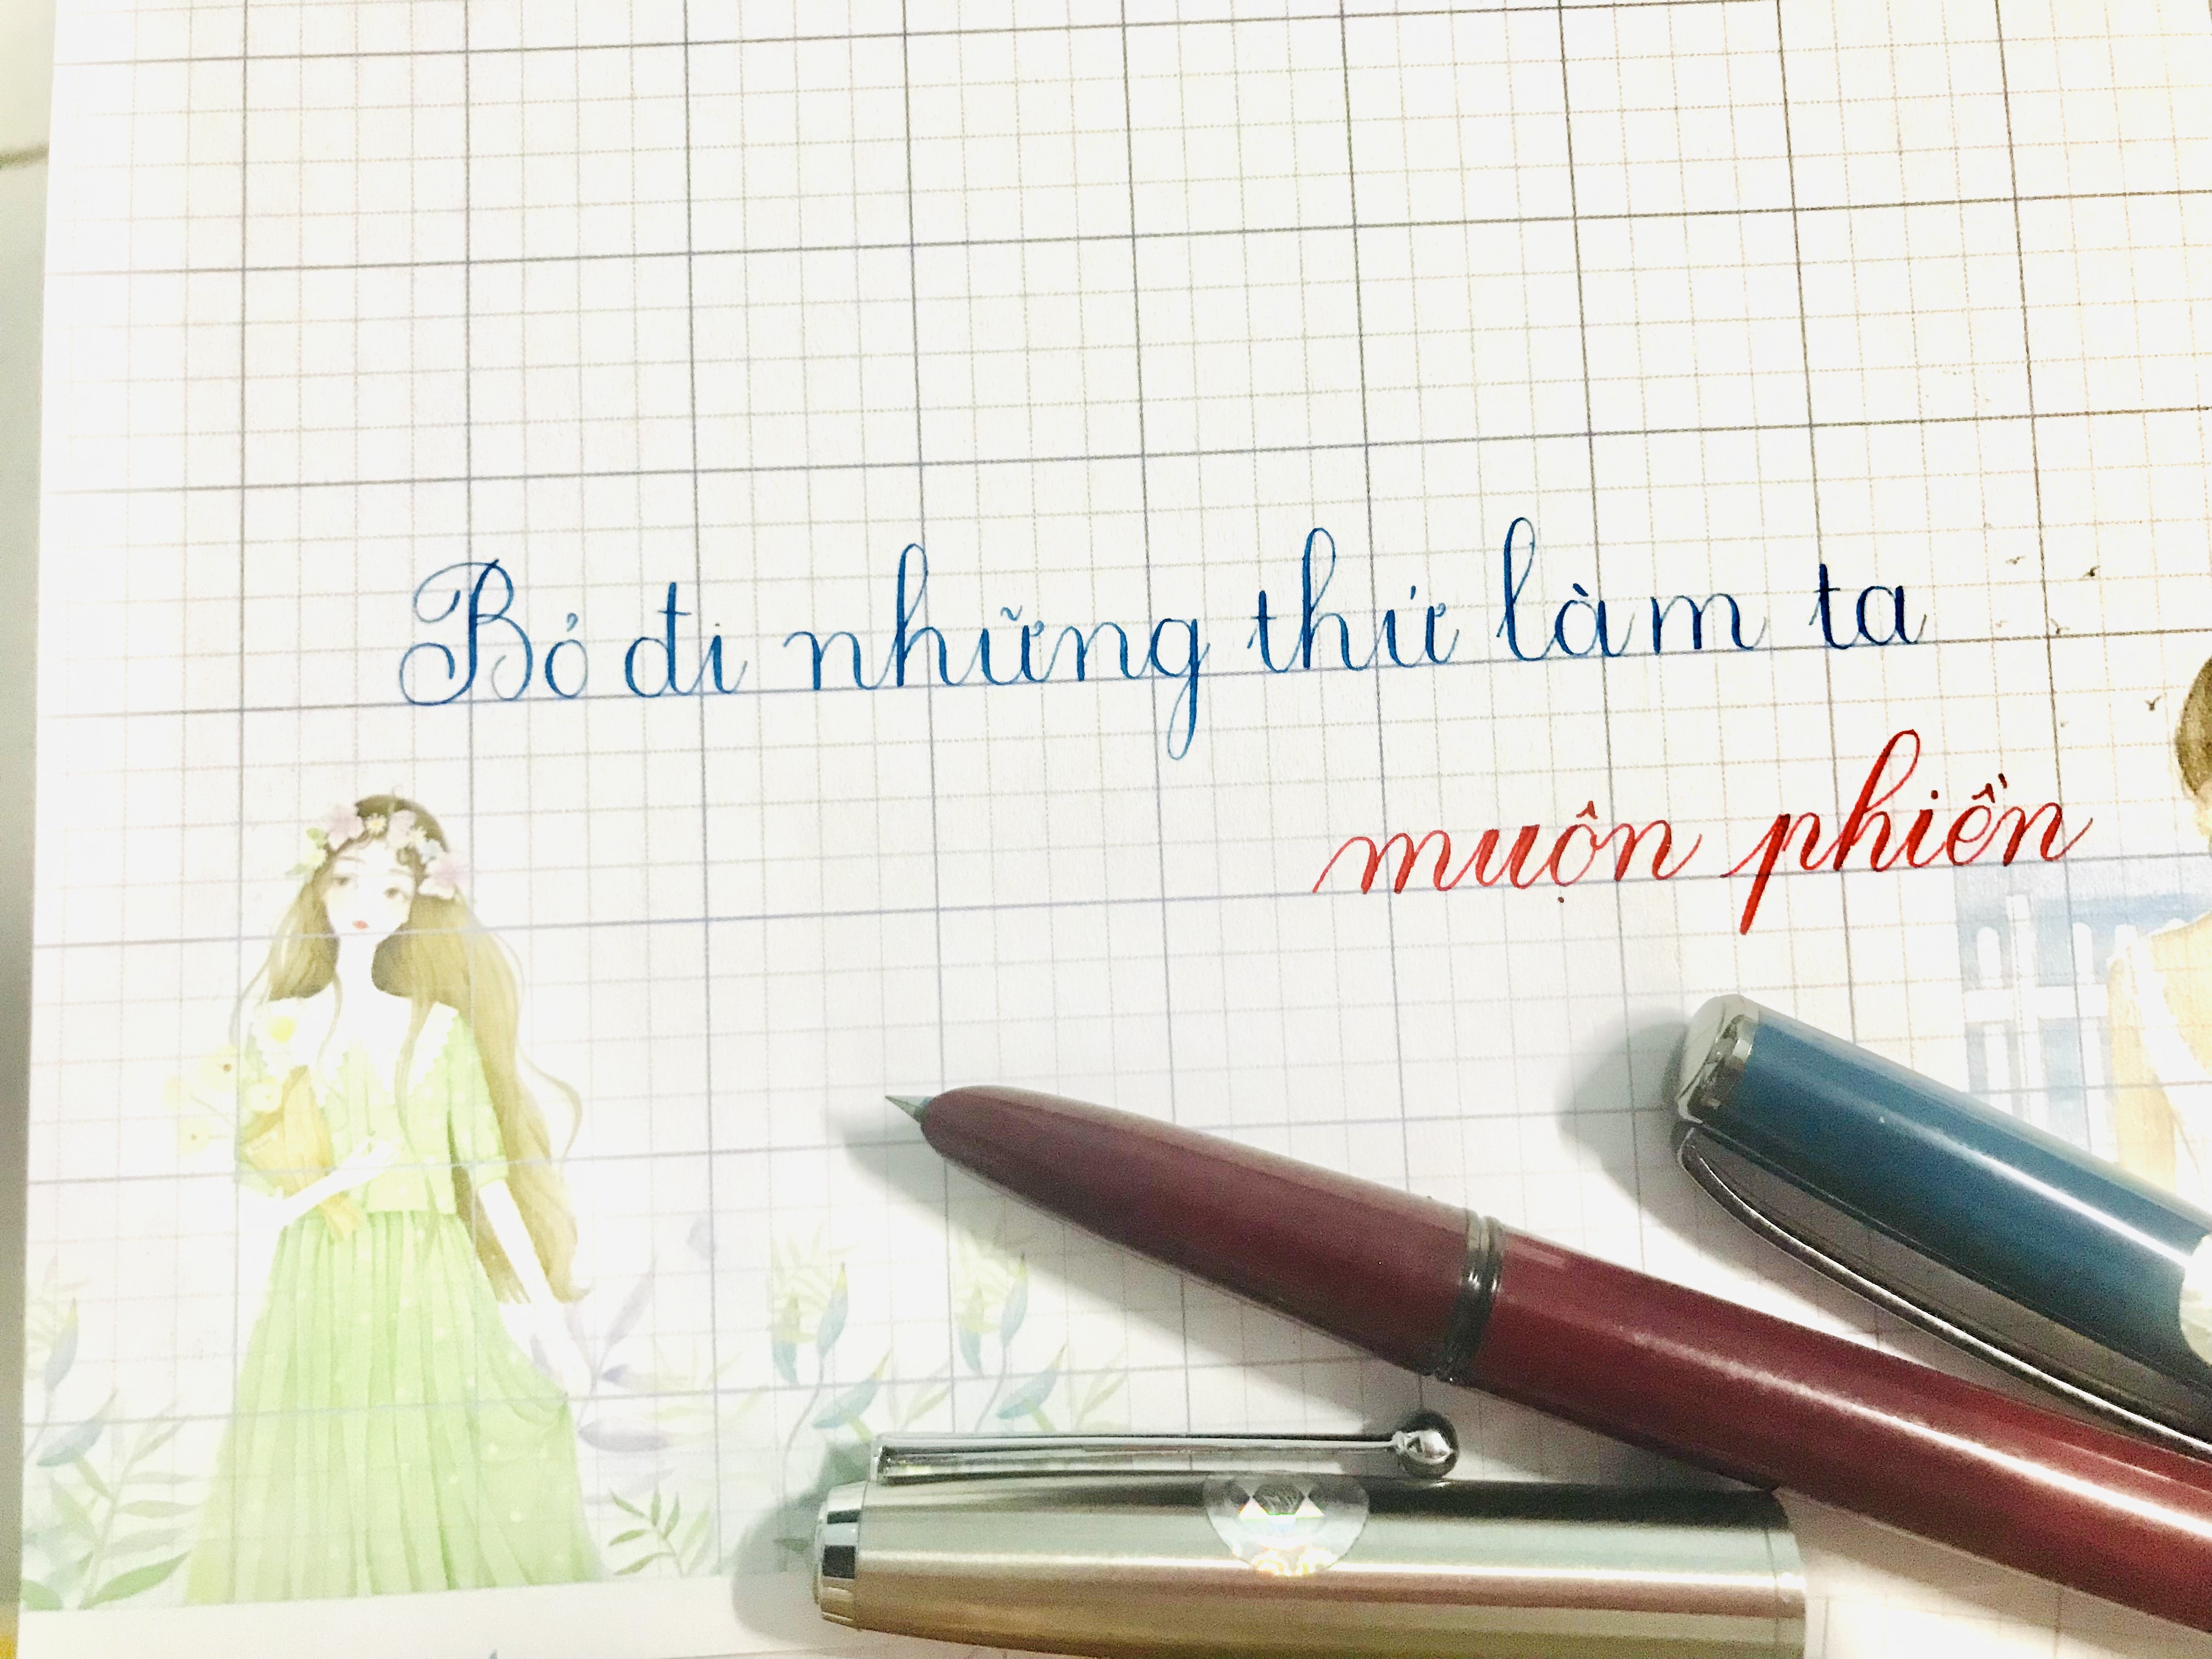 Bỏ đi những thứ làm ta
muộn phiền